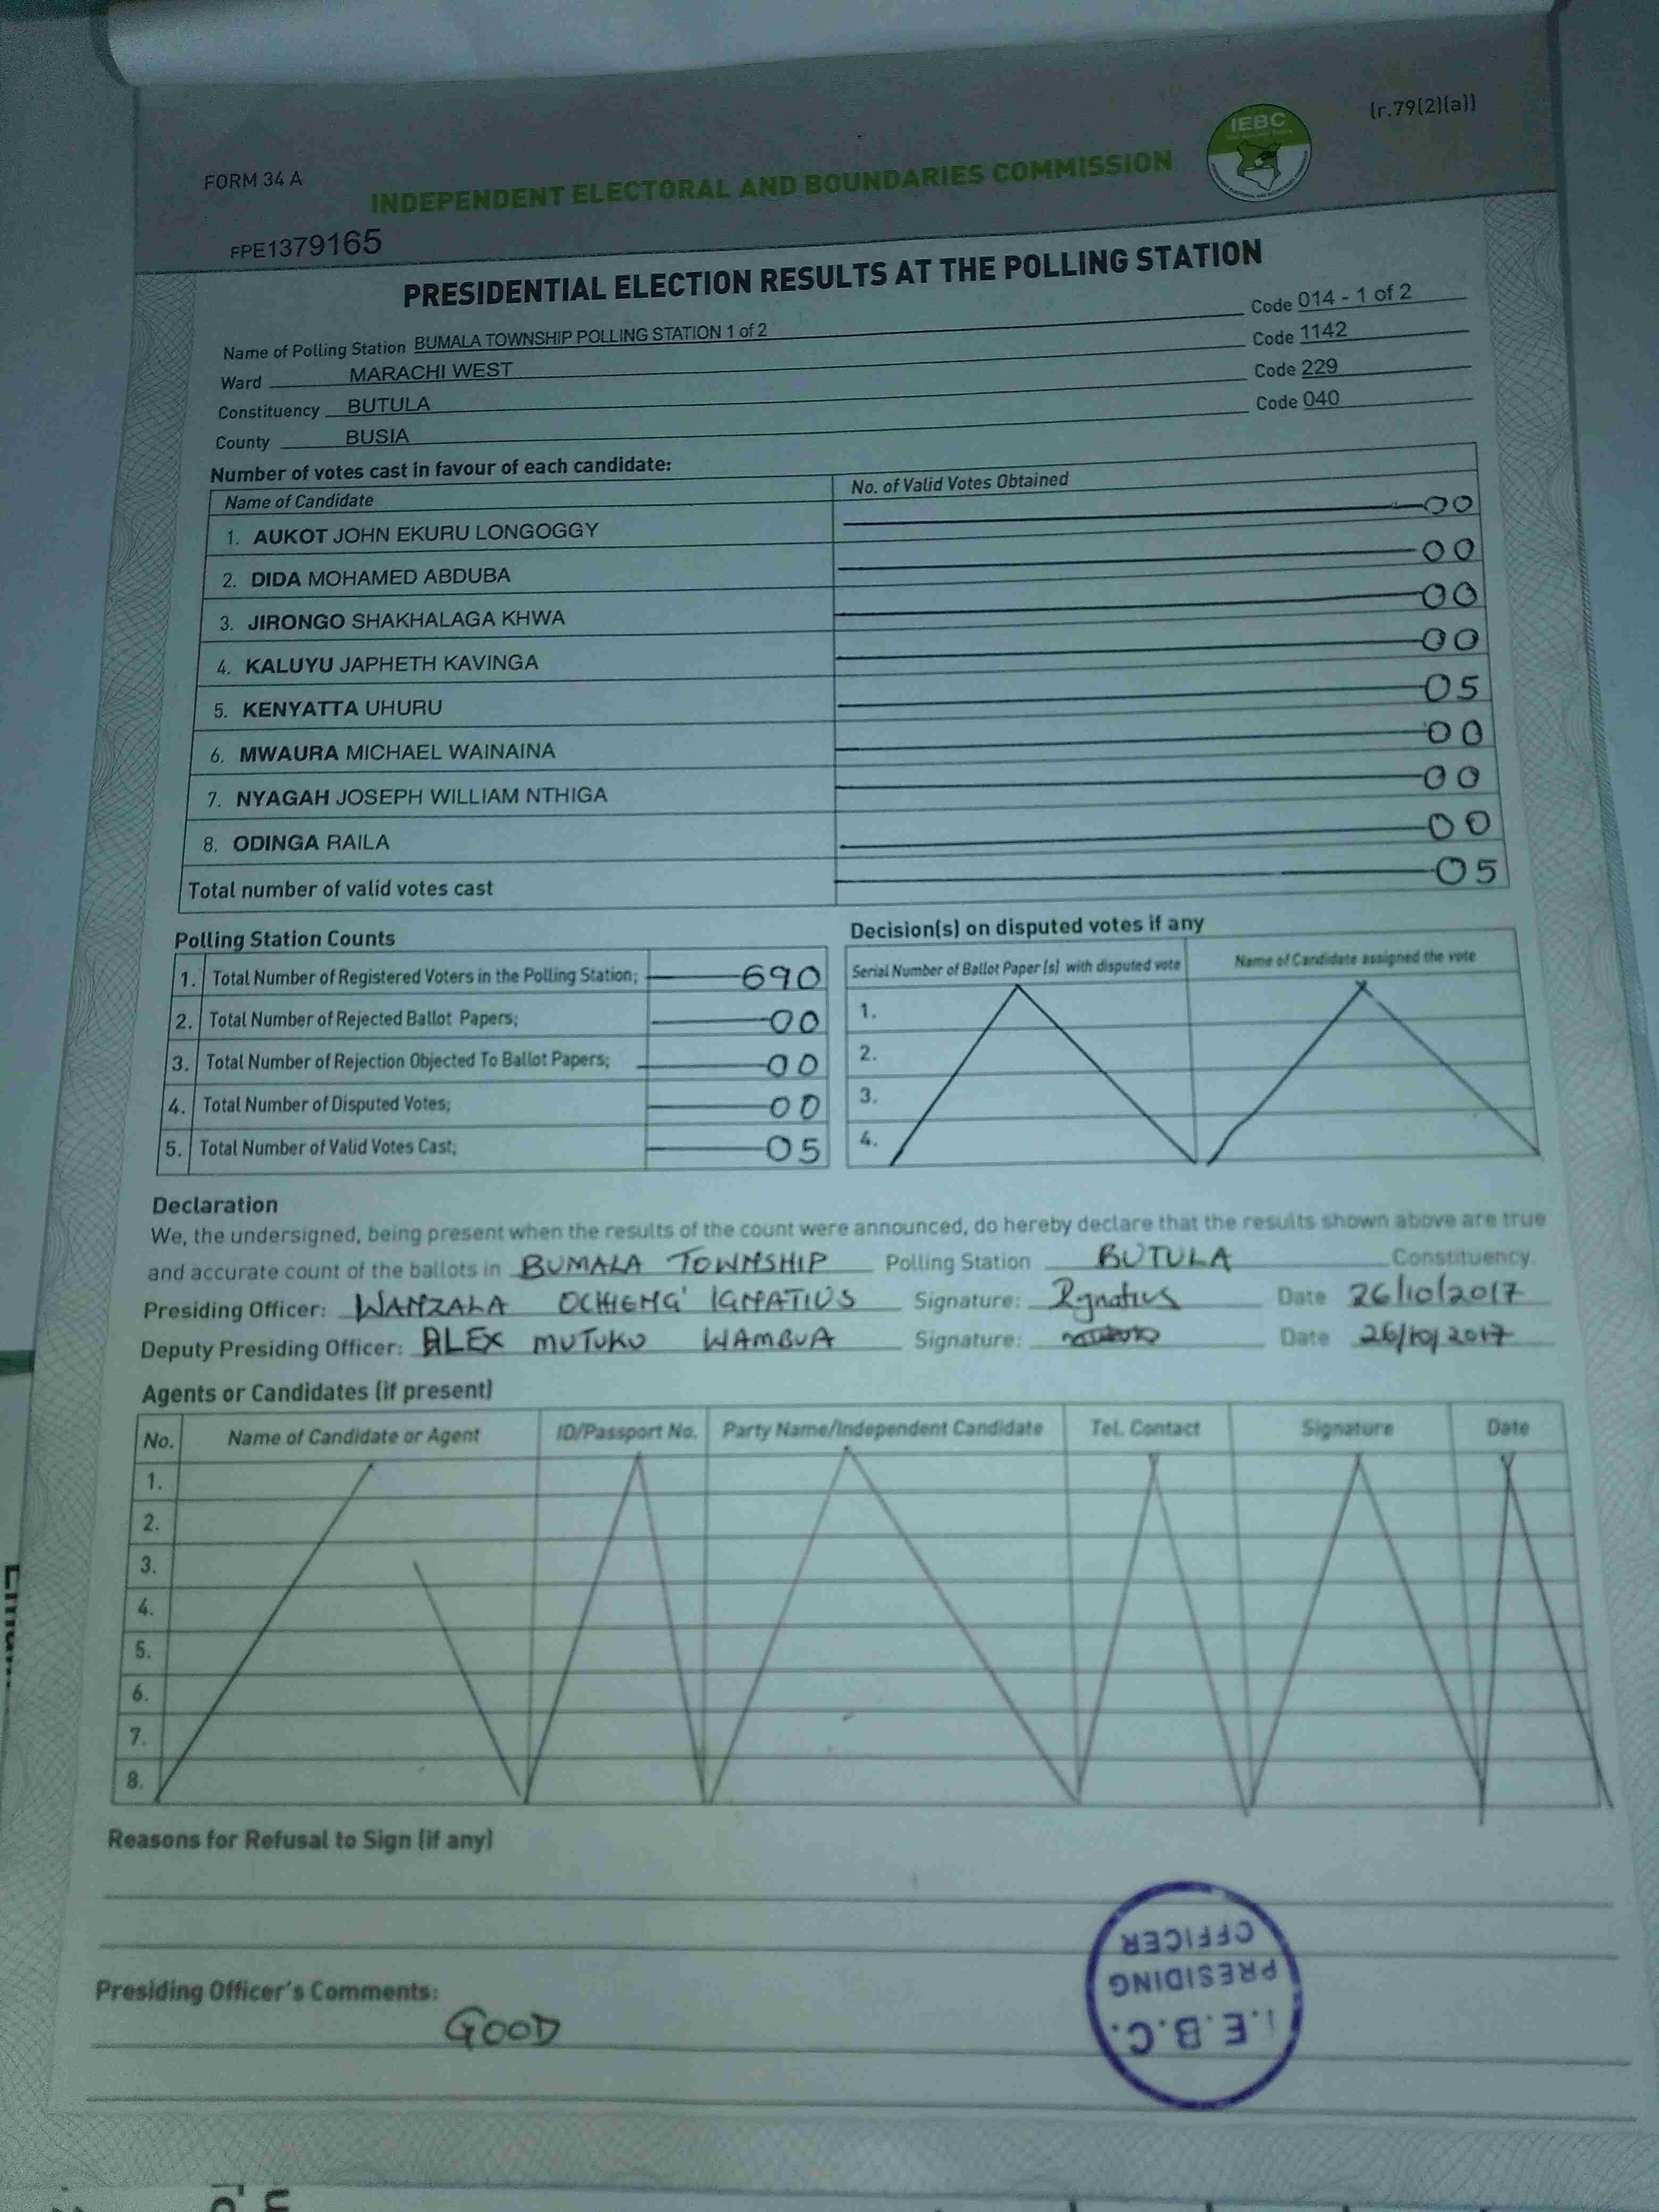 (r.79(2)(a))
IEBC
FORM 34 A
INDEPENDENT ELECTORAL AND BOUNDARIES COMMISSION
FPE1379165
PRESIDENTIAL ELECTION RESULTS AT THE POLLING STATION
Name of Polling Station BUMALA TOWNSHIP POLLING STATION 1 of 2 Code 014 - 1 of 2
Ward MARACHI WEST Code 1142
Constituency BUTULA Code 229
County BUSIA Code 040
Number of votes cast in favour of each candidate:
Name of Candidate No. of Valid Votes Obtained
1. AUKOT JOHN EKURU LONGOGGY 00
2. DIDA MOHAMED ABDUBA 00
3. JIRONGO SHAKHALAGA KHWA 00
4. KALUYU JAPHETH KAVINGA 00
5. KENYATTA UHURU 05
6. MWAURA MICHAEL WAINAINA 00
7. NYAGAH JOSEPH WILLIAM NTHIGA 00
8. ODINGA RAILA 00
Total number of valid votes cast 05
Polling Station Counts
1. Total Number of Registered Voters in the Polling Station; 690
2. Total Number of Rejected Ballot Papers; 00
3. Total Number of Rejection Objected To Ballot Papers; 00
4. Total Number of Disputed Votes; 00
5. Total Number of Valid Votes Cast; 05
Decision(s) on disputed votes if any
Serial Number of Ballot Paper (s) with disputed vote Name of Candidate assigned the vote
1.
2.
3.
4.
Declaration
We, the undersigned, being present when the results of the count were announced, do hereby declare that the results shown above are true
and accurate count of the ballots in BUMALA TOWNSHIP Polling Station BUTULA Constituency.
Presiding Officer: WANZALA OCHIENG' IGNATIUS Signature: Ignatius Date 26/10/2017
Deputy Presiding Officer: ALEX MUTUKU WAMBUA Signature: Date 26/10/2017
Agents or Candidates (if present)
No. Name of Candidate or Agent ID/Passport No. Party Name/Independent Candidate Tel. Contact Signature Date
1.
2.
3.
4.
5.
6.
7.
8.
Reasons for Refusal to Sign (if any)
Presiding Officer's Comments:
GOOD
I.E.B.C.
PRESIDING
OFFICER